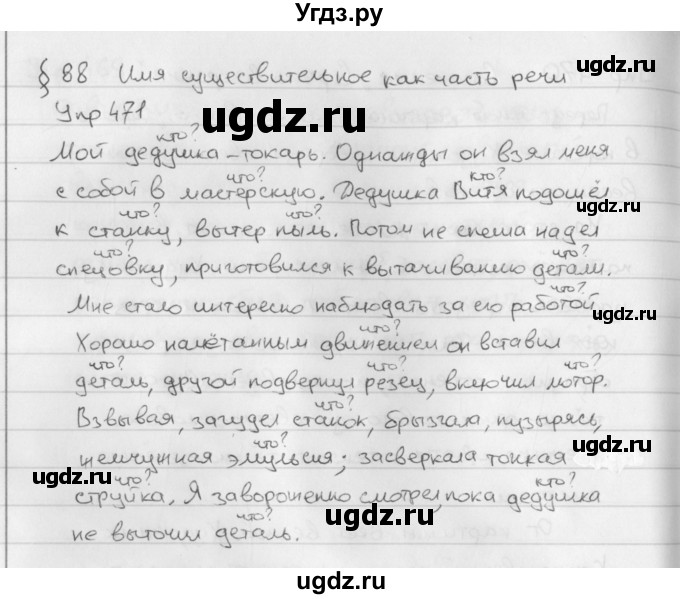 Угдз.ру
§ 88 Имя существительное как часть речи
Упр 471
ugdz.ru
кто?
Мой дедушка – токарь. Однажды он взял меня
что? кто?
с собой в мастерскую. Дедушка Витя подошёл
что? что?
к станку, вытер пыль. Потом не спеша надел
что? что?
спецовку, приготовился к вытачиванию детали.
что?
Мне стало интересно наблюдать за его работой.
ugdz.ru
что?
Хорошо намётанным движением он вставил
что? что? что?
деталь, другой подвернул резец, включил мотор.
что?
Взвывая, загудел станок, брызгала, пузырясь,
что?
жемчужная эмульсия; засверкала тонкая
ugdz.ru
что? кто?
струйка. Я заворожённо смотрел, пока дедушка
ugdz.ru
что?
не выточил деталь.
ugdz.ru